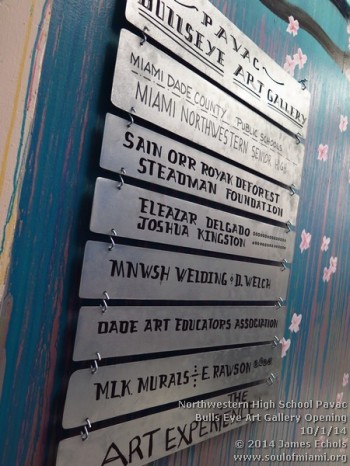 PAVAC
BULLSEYE ART GALLERY
MIAMI DADE COUNTY PUBLIC SCHOOLS
MIAMI NORTHWESTERN SENIOR HIGH
SAIN ORR ROYAK DEFOREST
STEADMAN FOUNDATION
ELEAZAR DELGADO
JOSHUA KINGSTON
MNWSH WELDING & D. WELCH
DADE ART EDUCATORS ASSOCIATION
MLK MURALS & E. RAWSON
THE
ART EXPERIENCE
Northwestern High School Pavac
Bulls Eye Art Gallery Opening
10/1/14
© 2014 James Echols
www.soulofmiami.org